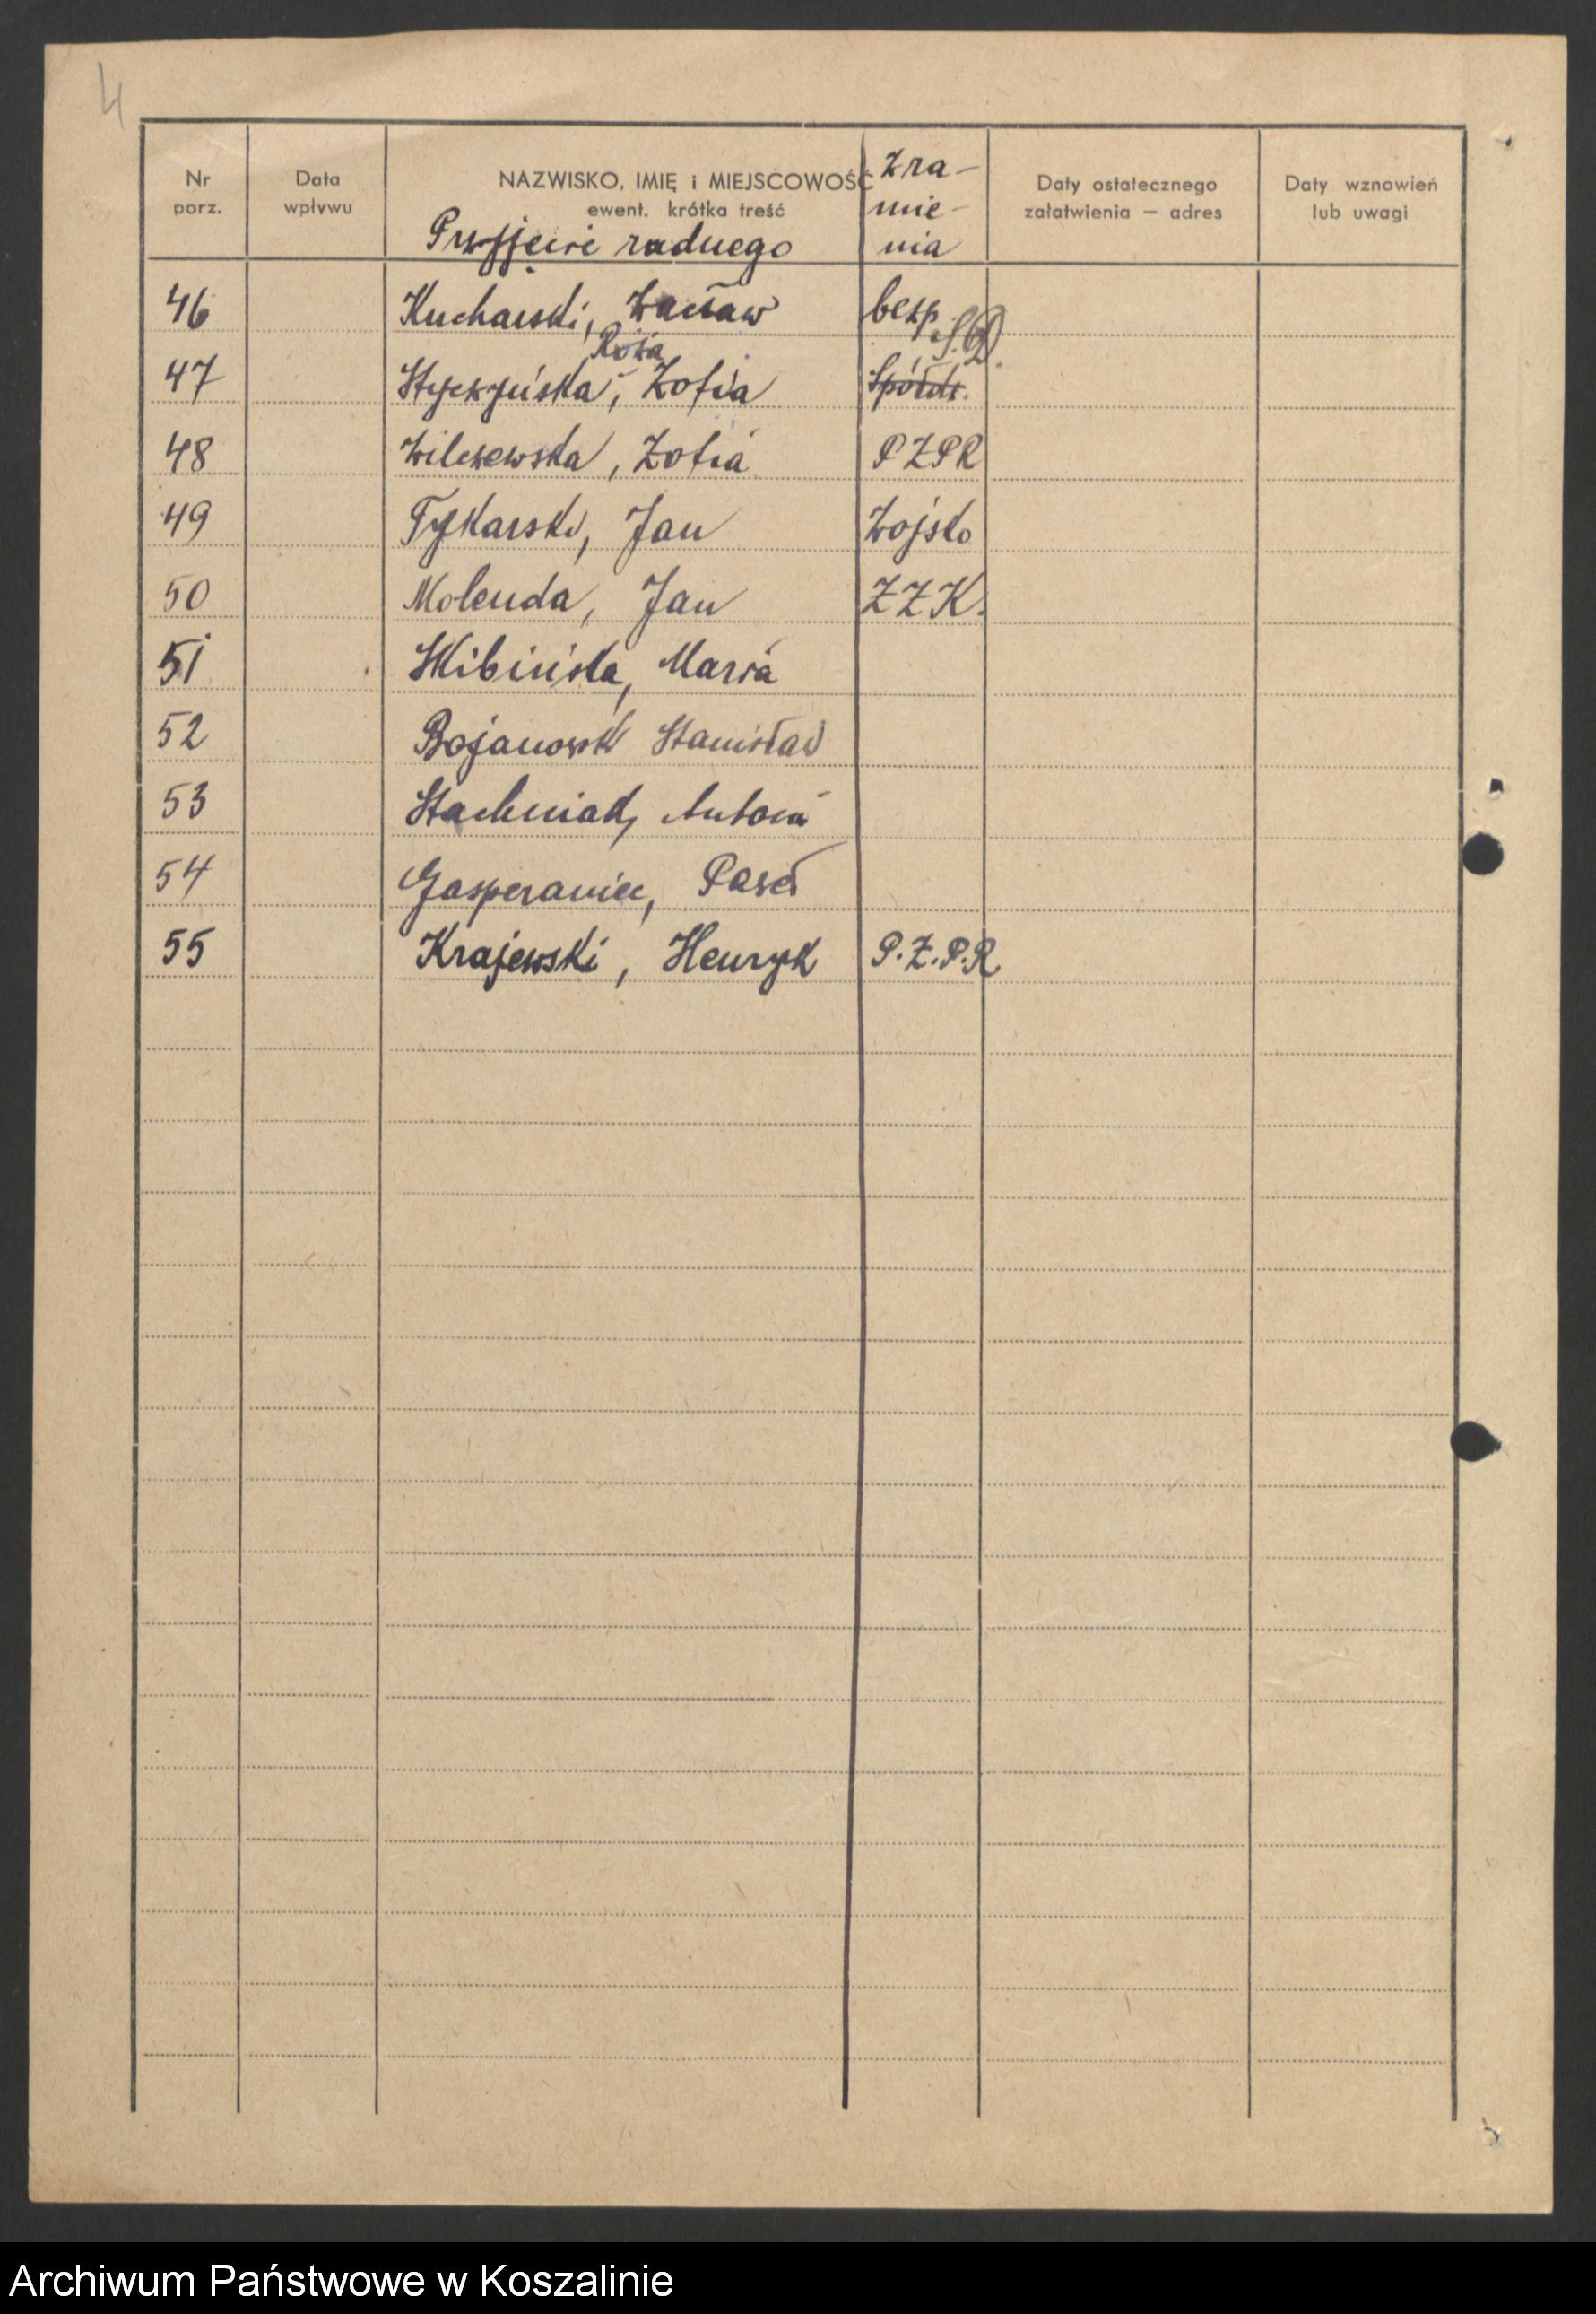 4
Nr porz.
Data wpływu
NAZWISKO, IMIĘ i MIEJSCOWOŚĆ
ewent. krótka treść
Przyjęcie radnego
Z ra-
mie-
nia
Daty ostatecznego
załatwienia — adres
Daty wznowień
lub uwagi
46 Kucharski, Wacław bezp.
Róża S.D.
47 Styczyńska, Zofia Spółdz.
48 Wilczewska, Zofia PZPR
49 Tykarski, Jan Wojsko
50 Molenda, Jan ZZK.
51 Skibińska, Maria
52 Bojanowski Stanisław
53 Stachniak, Antoni
54 Gasperaviec, Paweł
55 Krajewski, Henryk P.Z.P.R.
Archiwum Państwowe w Koszalinie